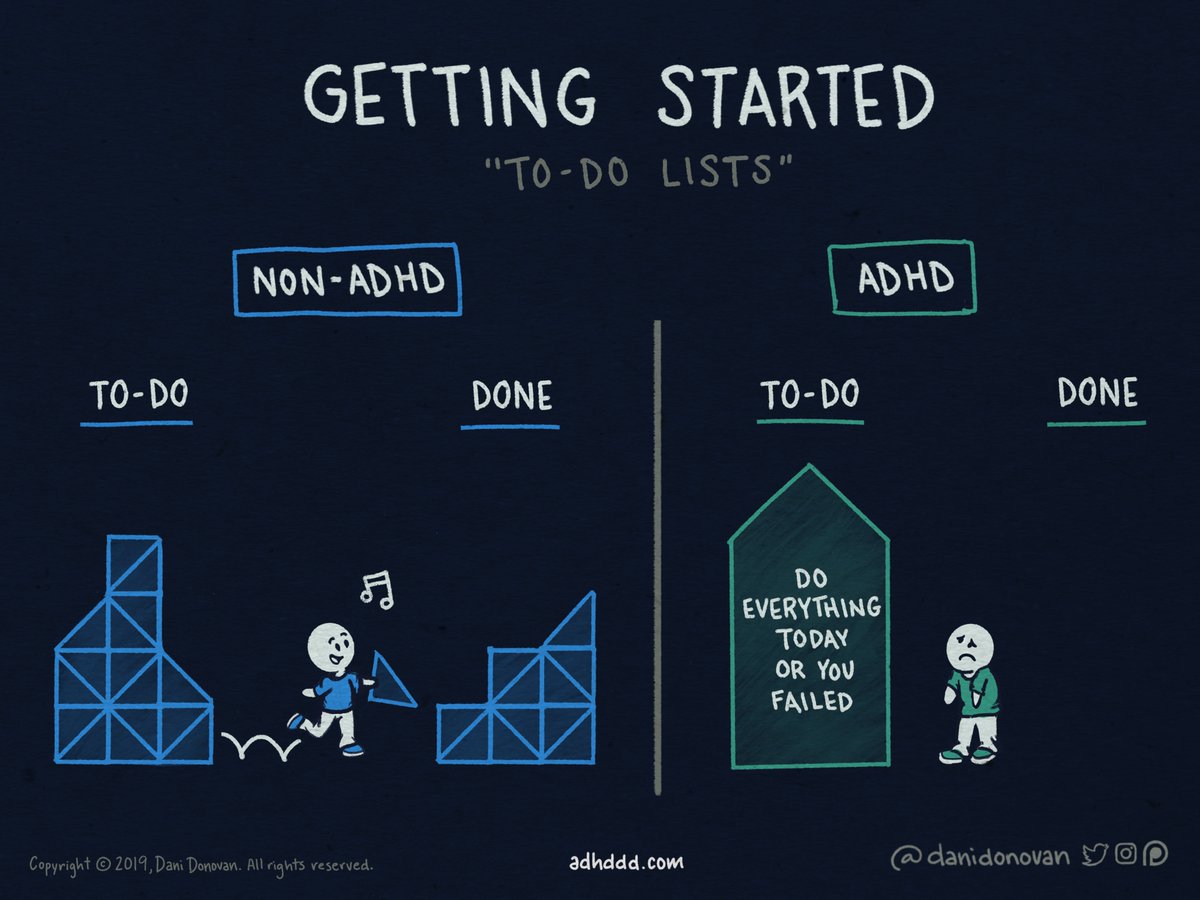 GETTING STARTED
"TO-DO LISTS"
NON-ADHD
TO-DO
DONE
ADHD
TO-DO
DONE
DO
EVERYTHING
TODAY
OR YOU
FAILED
Copyright © 2019, Dani Donovan. All rights reserved.
adhddd.com
@danidonovan